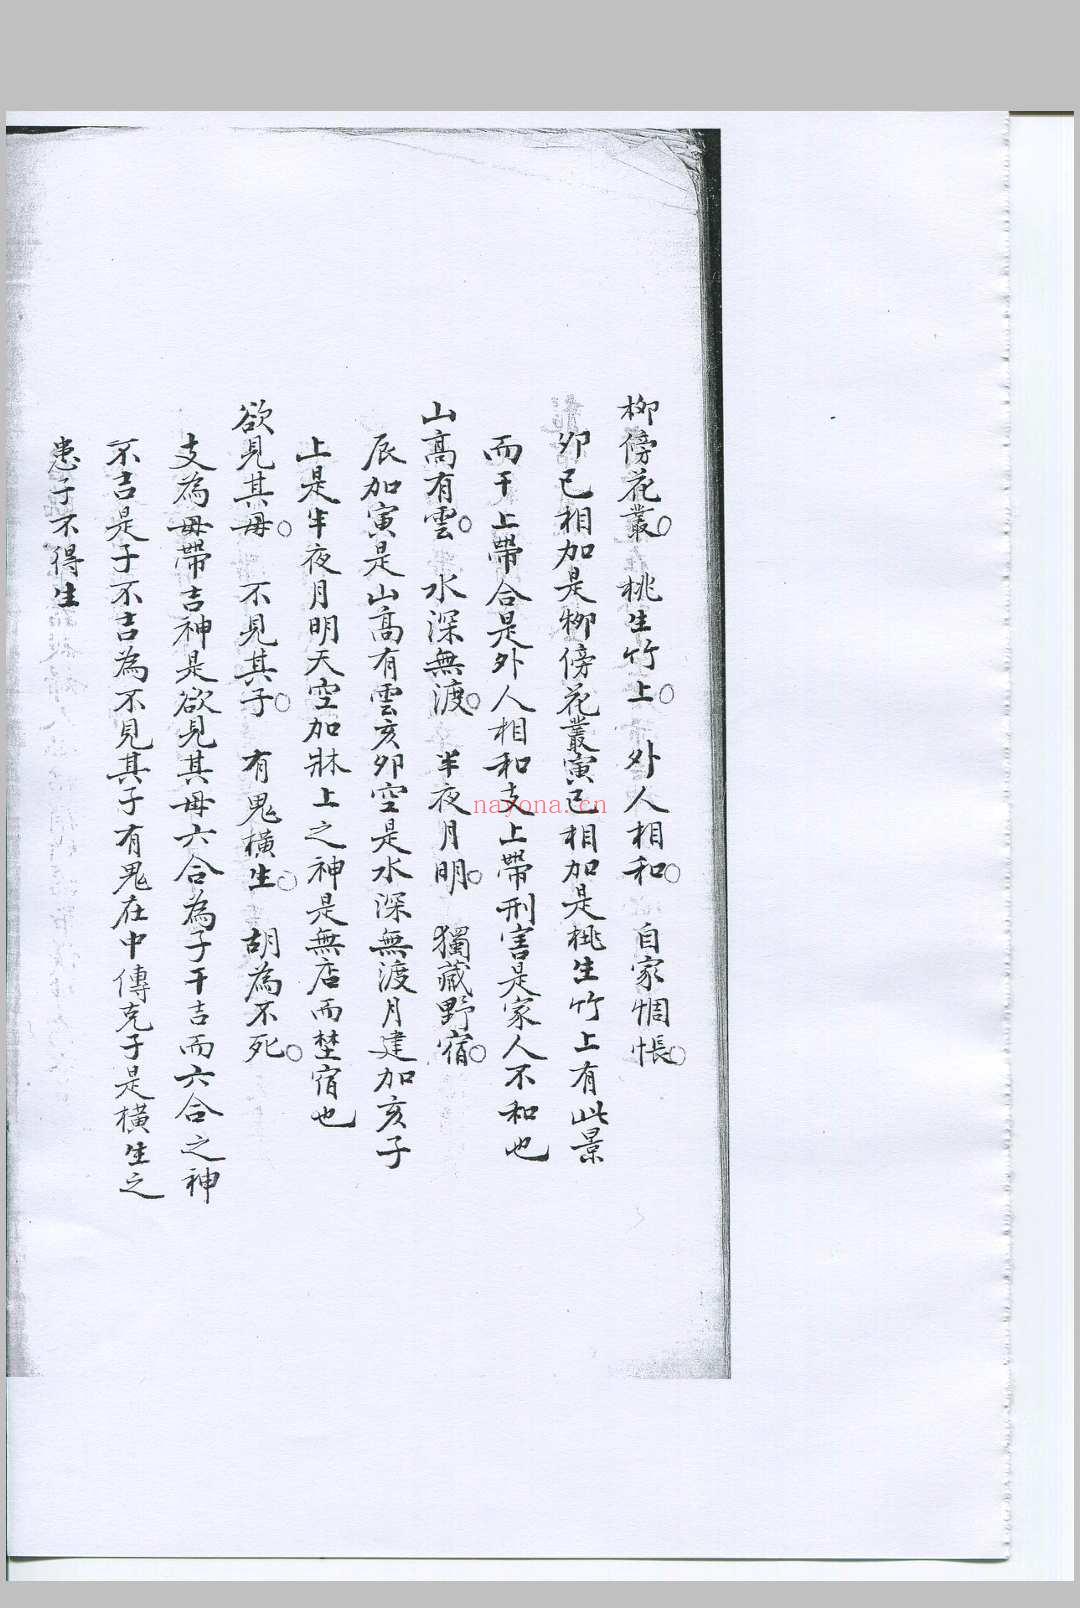 柳傍花叢○桃生竹上○外人相和○自家惆悵○
卯巳相加是柳傍花叢寅巳相加是桃生竹上有此景
而干上帶合是外人相和支上帶刑害是家人不和也
山高有雲○水深無渡○半夜月明○獨藏野宿○
辰加寅是山高有雲亥卯空是水深無渡月建加亥子
上是半夜月明天空加牀上之神是無店而埜宿也
欲見其母○不見其子○有鬼橫生○胡為不死○
支為母帶吉神是欲見其母六合為子干吉而六合之神
不吉是子不吉為不見其子有鬼在中傳克子是橫生之
患子不得生
nayona.cn